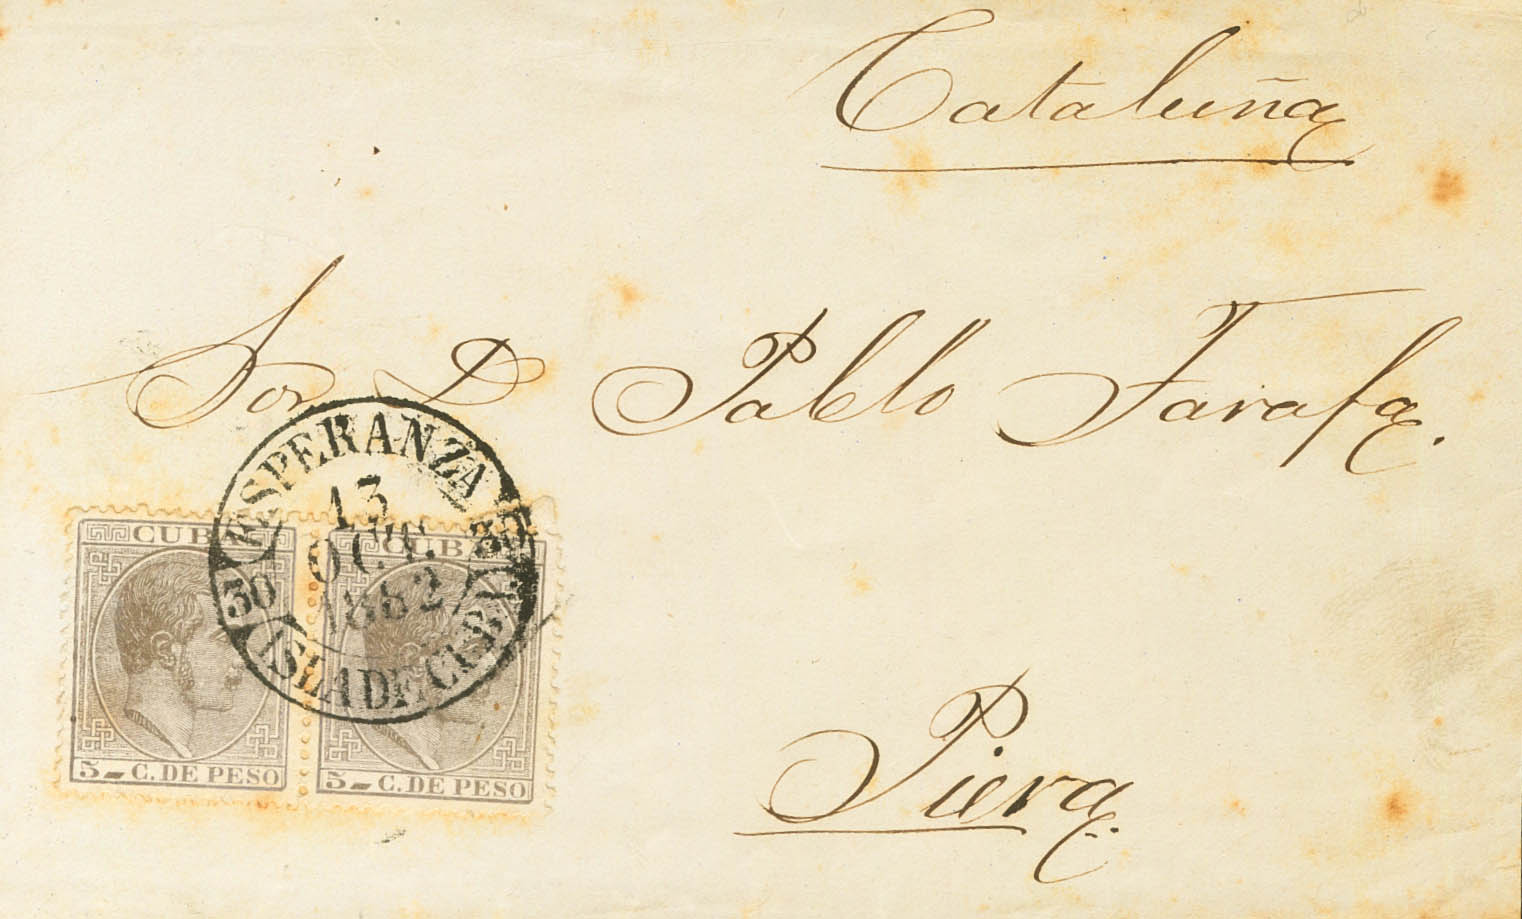 Cataluña
Sor D Pablo Tarafa.
ESPERANZA
13
OCT.
1882
30 30
ISLA DE CUBA
CUBA CUBA
5 C. DE PESO 5 C. DE PESO
Piera